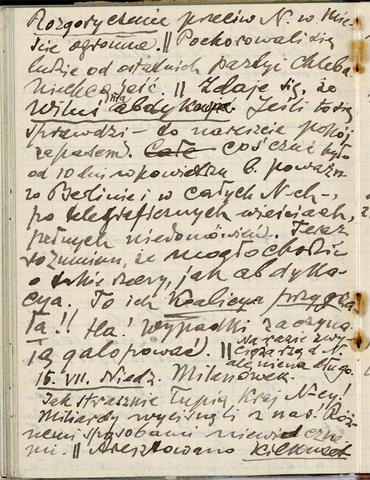 Rozgoryczenie przeciw N. w mie-
ście ogromne. || Pochorowali się
ludzie od ostatnich partyi chleba
. || Zdaje się, że
Wiluś ma abdykować. Jeśli to się
sprawdzi – to nareszcie pokój
za pasem. Coś czuć było
od 10 dni w powietrzu b. poważn.
w Berlinie i w całych N-ch,
po telegraficznych wieściach,
pełnych niedomówień. Teraz
rozumiem, że mogło chodzić
o takie rzeczy, jak abdyka-
cya. To ich Koalicya przygnia-
ta!! Ha! Wypadki zaczyna-
ją galopować. || Na razie zwy-
ciężają N.
ale nie na długo.
15. VII. Niedz. Milanówek.
Jak strasznie łupią Kraj N-cy!
Miliardy wycisnęli z nas. Róż-
nemi sposobami niewidzialne-
mi. || Aresztowano kilkunast